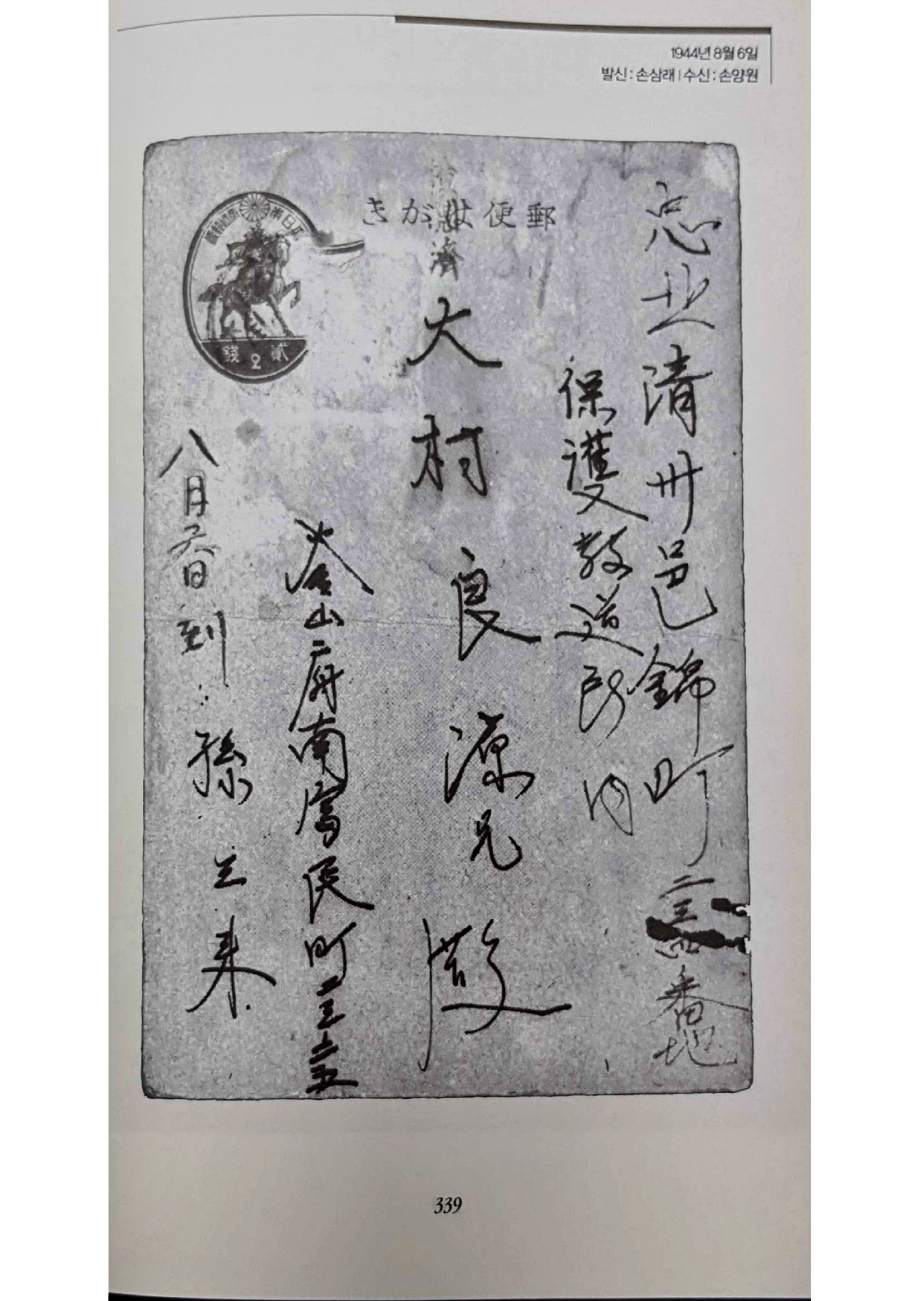 1944년 8월 6일
발신 : 손삼래 | 수신 : 손양원
郵便はがき
濟
大日本帝國郵便
貳 2 錢
忠北清州邑錦町 番地
保護教導所內
大村良源兄
釜山府南富民町
八月 日 到 孫 來
339